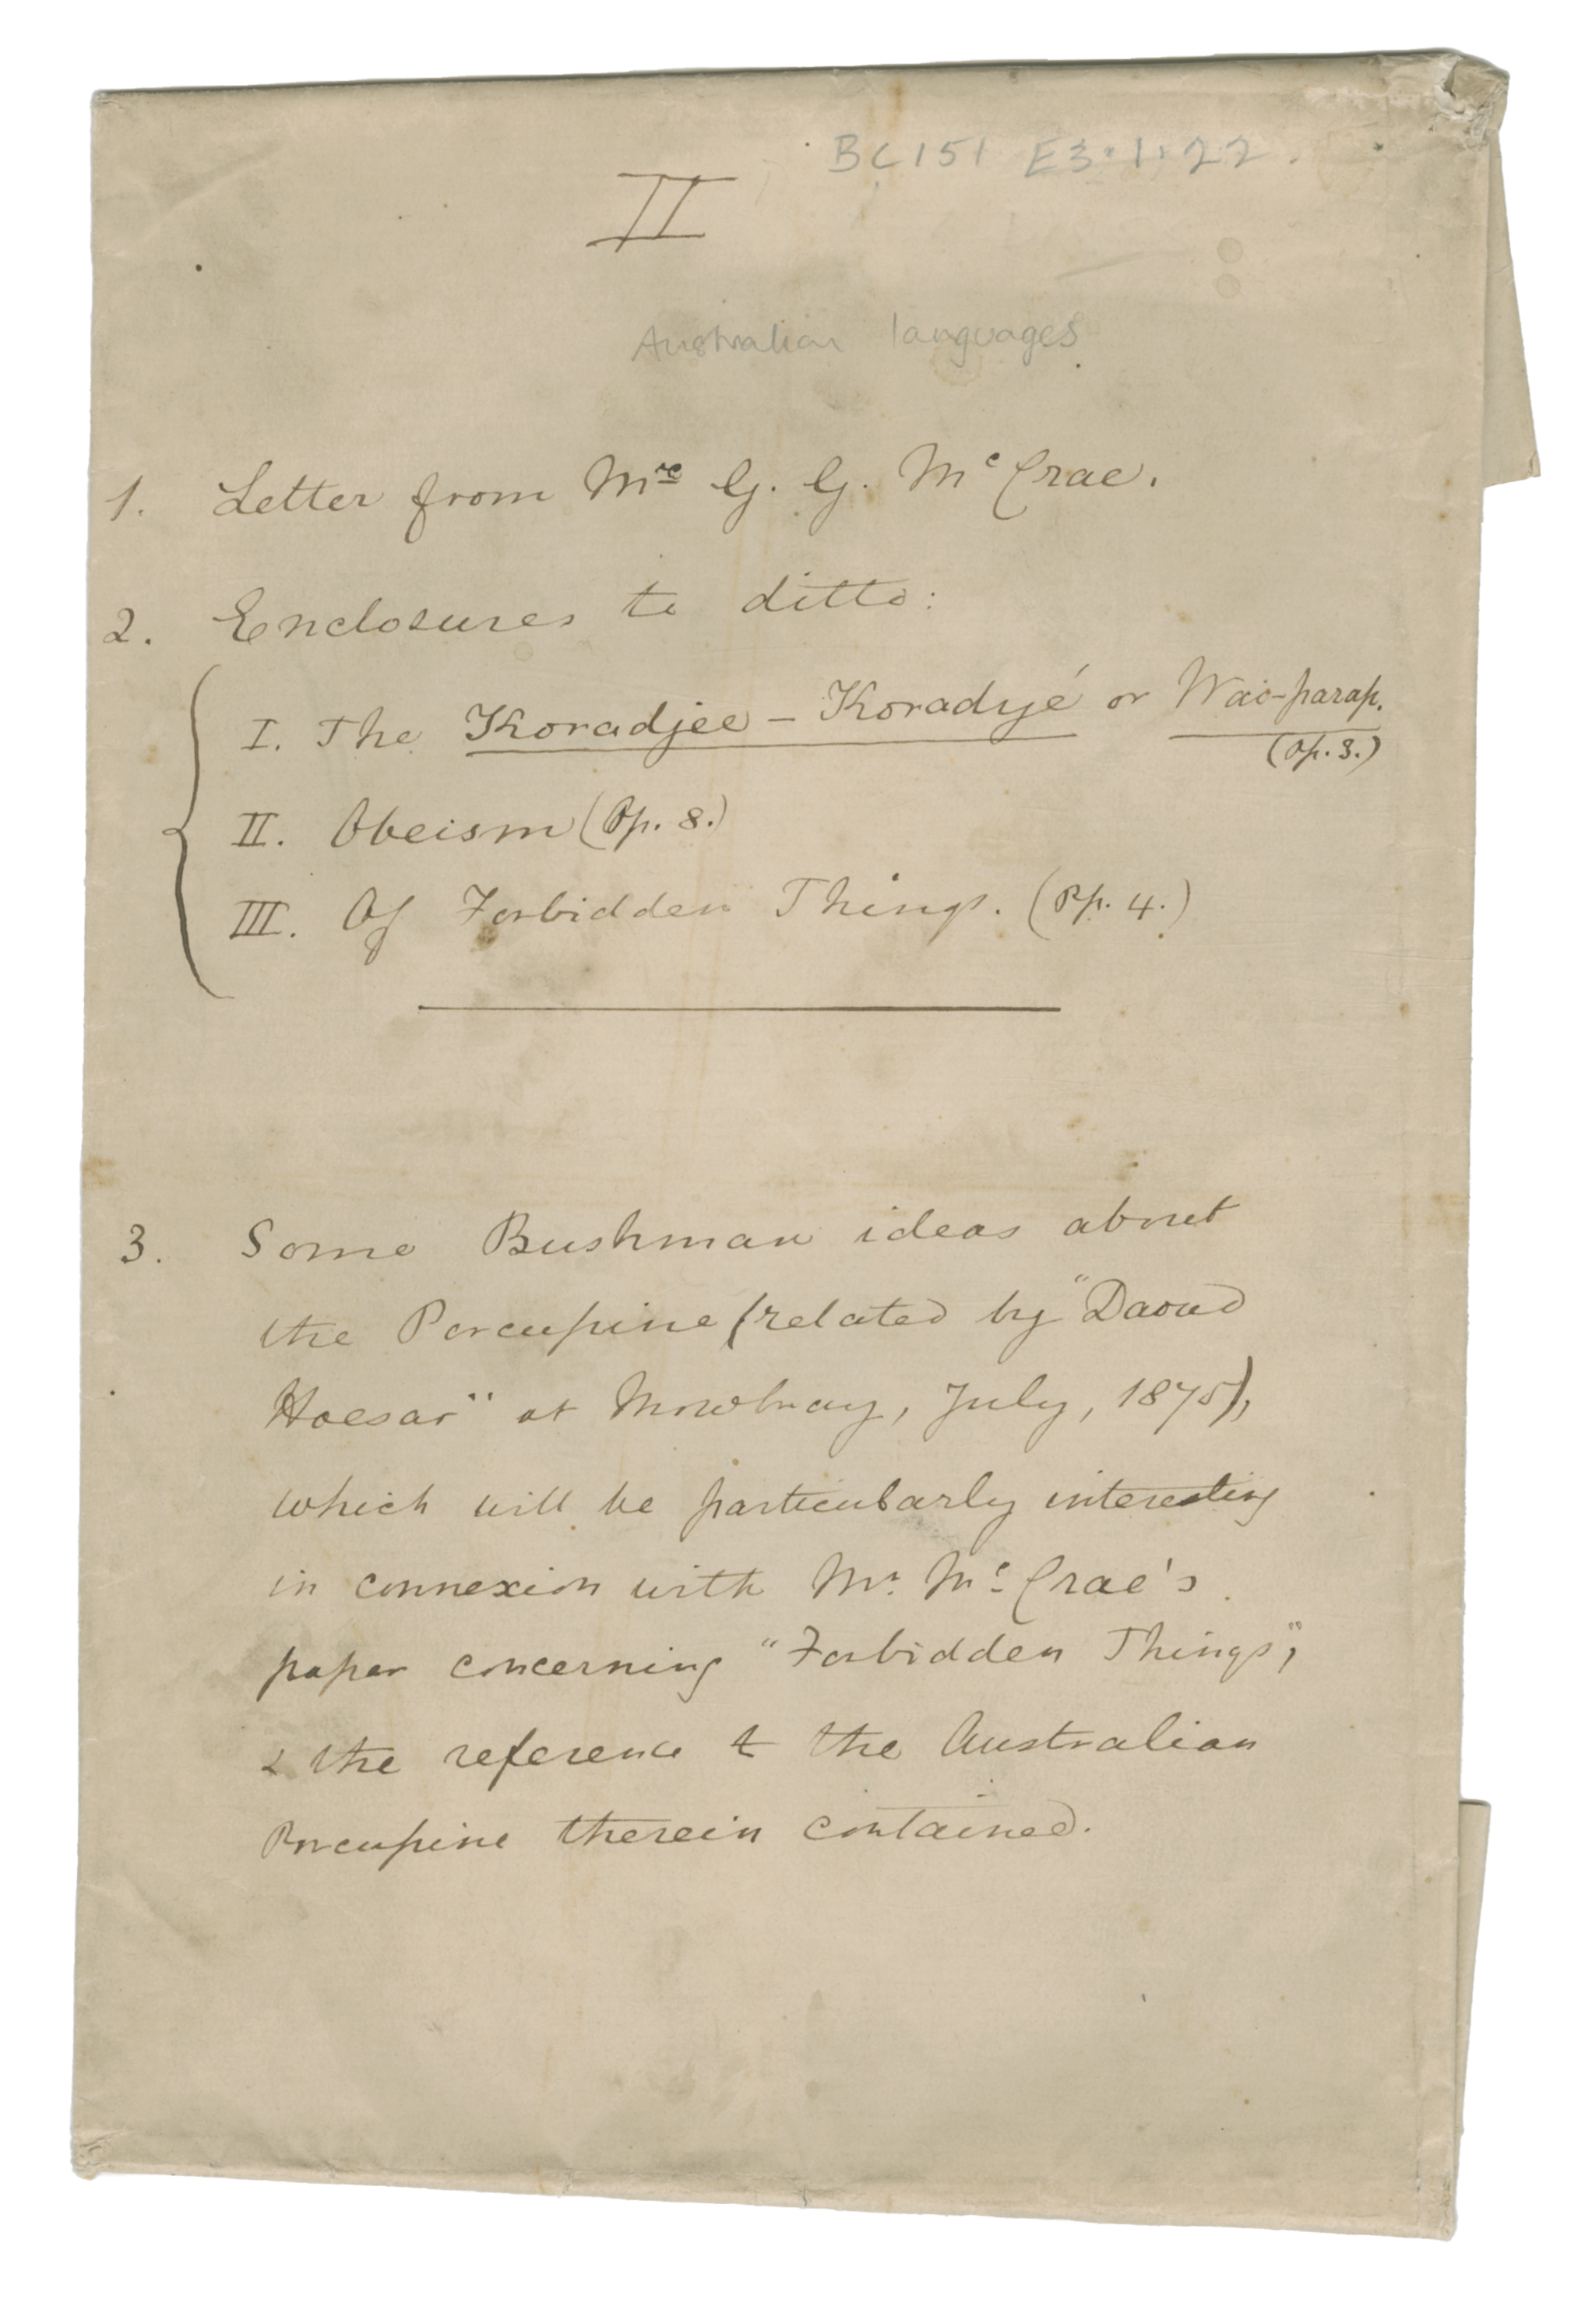 BC151 E3.1.22.
II
Australian languages
1. Letter from Mr G. G. McCrae.
2. Enclosures to ditto:
I. The Koradjee - Koradyé or Wao-parap.
(Pp. 3.)
II. Obeism (Pp. 8.)
III. Of Forbidden Things. (Pp. 4.)
3. Some Bushman ideas about
the Porcupine (related by "Daoud
Hoesar" at Mowbray, July, 1875),
which will be particularly interesting
in connexion with Mr. McCrae's
paper concerning "Forbidden Things",
& the reference to the Australian
Porcupine therein contained.